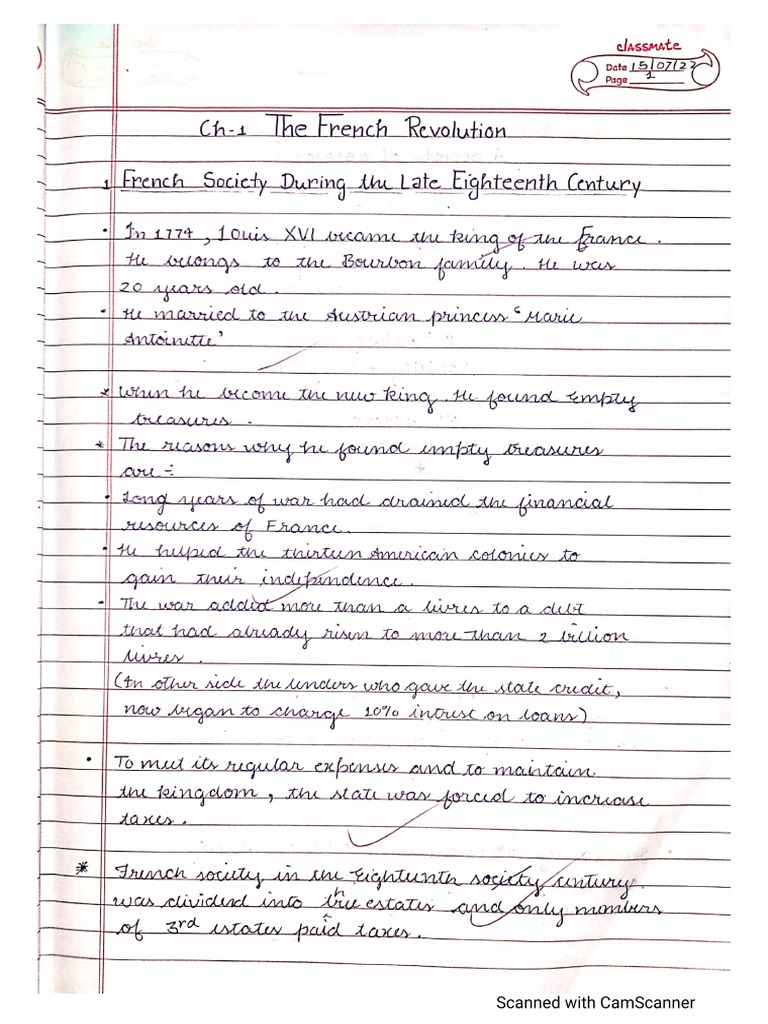 classmate
Date 15/07/22
Page 1
Ch-1 The French Revolution
1 French Society During the Late Eighteenth Century
• In 1774, Louis XVI became the king of the France.
He belongs to the Bourbon family. He was
20 years old.
• He married to the Austrian princess 'Marie
Antoinette'
* When he become the new king. He found Empty
treasures.
* The reasons why he found empty treasures
are :-
• Long years of war had drained the financial
resources of France.
• He helped the thirteen American colonies to
gain their independence.
• The war added more than a livres to a debt
that had already risen to more than 2 billion
livres.
(In other side the lenders who gave the state credit,
now began to charge 10% intrest on loans)
• To meet its regular expenses and to maintain
the kingdom, the state was forced to increase
taxes.
* French society in the Eighteenth society century.
was divided into three estates and only members
of 3rd estates paid taxes.
Scanned with CamScanner